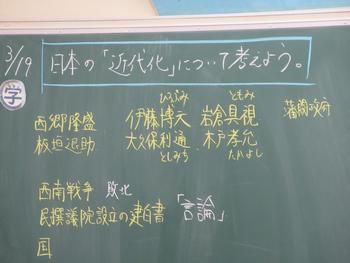 3/19
日本の「近代化」について考えよう。
学
ひろぶみ ともみ
西郷隆盛 伊藤博文 岩倉具視 藩閥政府
板垣退助 大久保利通 木戸孝允
としみち たかよし
西南戦争 敗北
民撰議院設立の建白書 「言論」
国